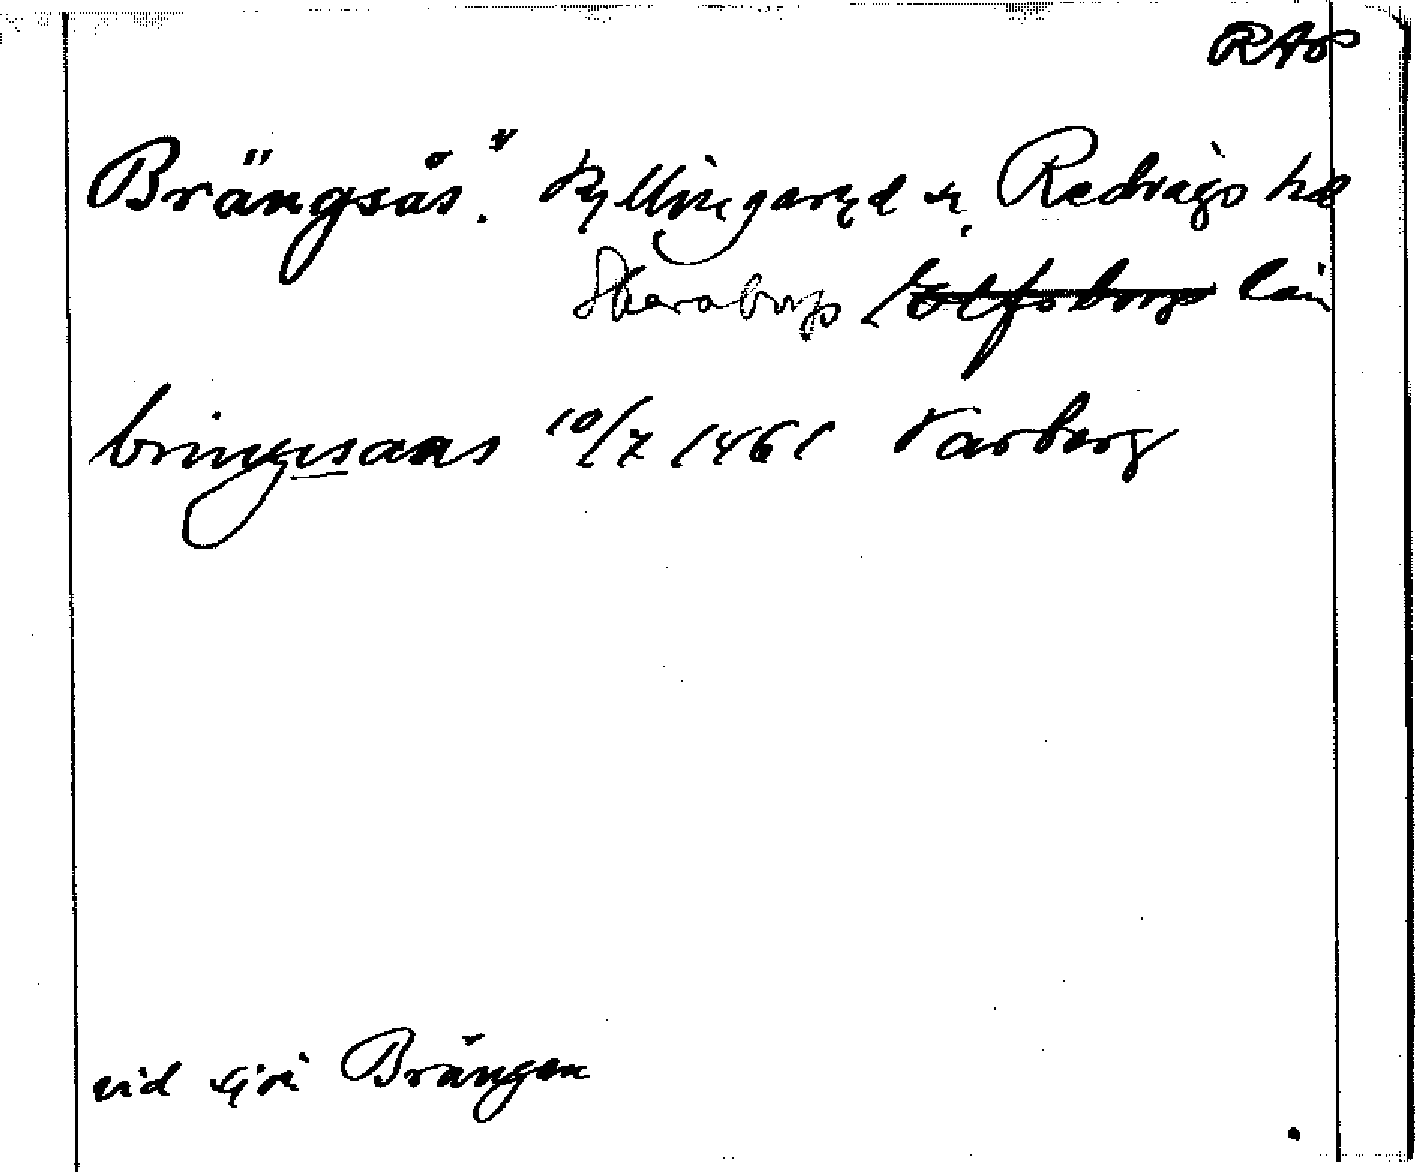 RAp
Brängsås. Kyllingared sn, Redvägs hd
Skaraborgs Elfsborgs län
bringesaas 10/7 1461 Varberg
vid sjön Brängen